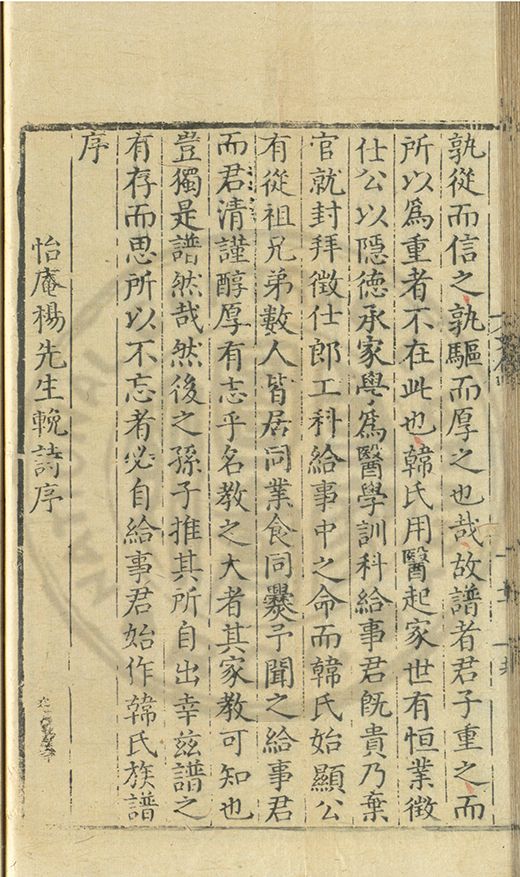 孰從而信之孰驅而厚之也哉故譜者君子重之而
所以爲重者不在此也韓氏用醫起家世有恒業徵
仕公以隱德承家學爲醫學訓科給事君旣貴乃棄
官就封拜徵仕郎工科給事中之命而韓氏始顯公
有從祖兄弟數人皆居同業食同爨予聞之給事君
而君清謹醇厚有志乎名教之大者其家教可知也
豈獨是譜然哉然後之孫子推其所自出幸兹譜之
有存而思所以不忘者必自給事君始作韓氏族譜
序
怡庵楊先生輓詩序